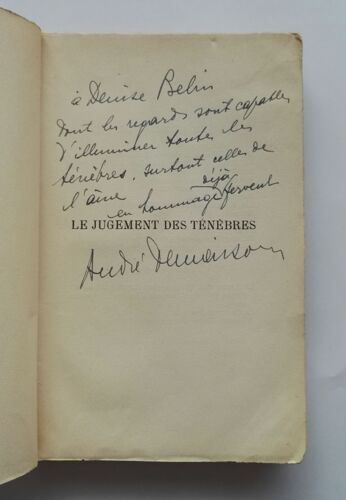 à Denise Belin
dont les regards sont capables
d'illuminer toutes les
ténèbres, surtout celles de
l'âme déjà
en hommage fervent
LE JUGEMENT DES TÉNÈBRES
André Demaison